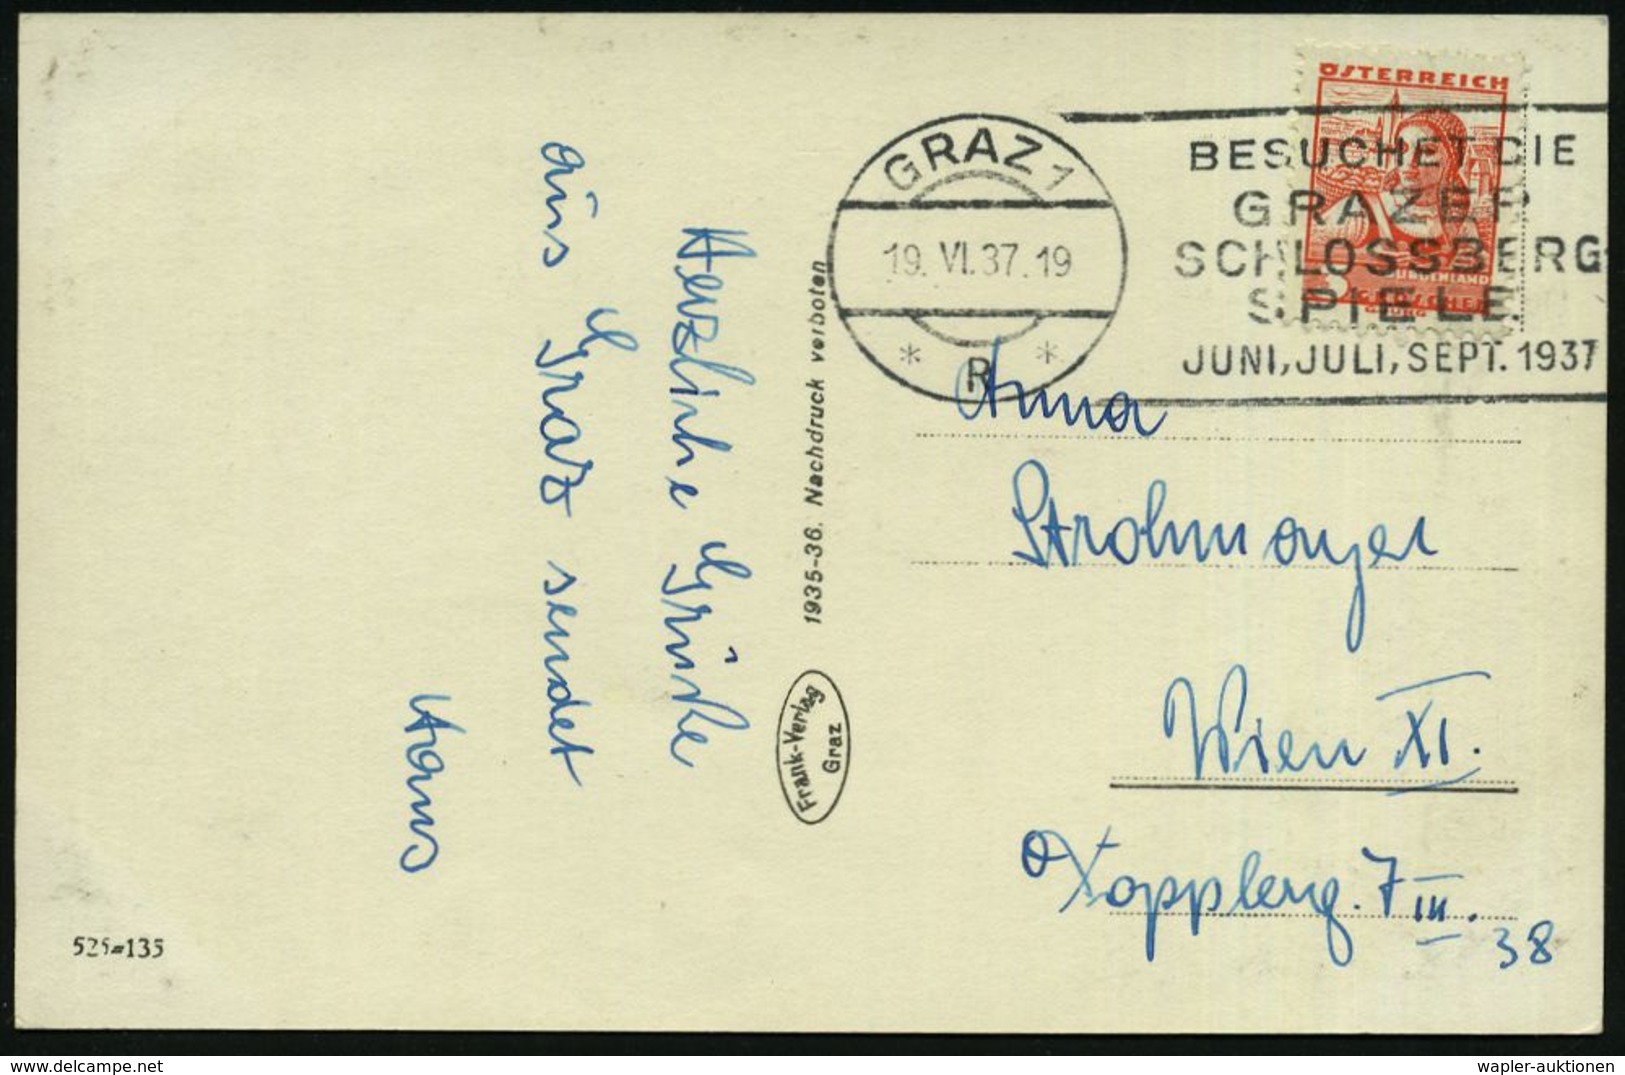 GRAZ 1
19. VI. 37. 19
* R *
BESUCHET DIE
GRAZER
SCHLOSSBERG-
SPIELE
JUNI, JULI, SEPT. 1937
ÖSTERREICH
BURGENLAND
GROSCHEN
Herzliche Grüße
aus Graz sendet
Hans
1935-36. Nachdruck verboten
Frank-Verlag
Graz
Anna
Strohmayer
Wien XI.
Kopplerg. 7 III.
38
525=135
wapler-auktionen